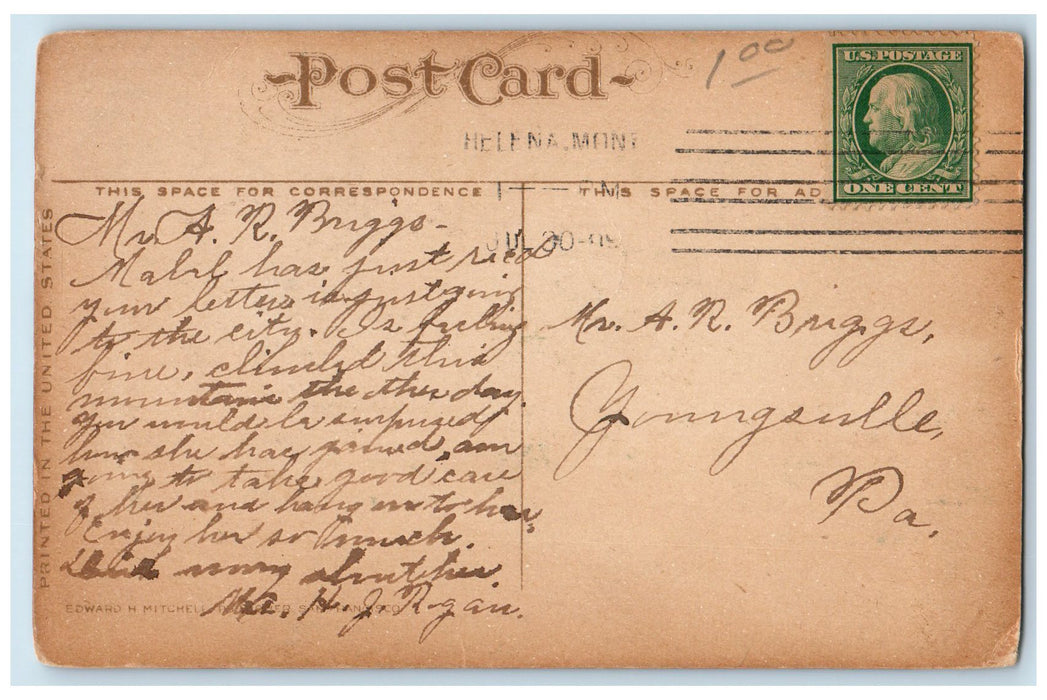 Post Card
1 00
U.S. POSTAGE
ONE CENT
HELENA, MONT
JUL 30-09
THIS SPACE FOR CORRESPONDENCE
THIS SPACE FOR AD
PRINTED IN THE UNITED STATES
Mr. A. R. Briggs -
Mabel has just rec'd
your letter is just going
to the city. Is feeling
fine, climbed this
mountain the other day.
you would be surprised
how she has gained, am
going to take good care
of her and hang on to her,
Enjoy her so much.
worry about her.
H. J. Rogan.
EDWARD H. MITCHELL, SAN FRANCISCO
Mr. A. R. Briggs,
Youngsville,
Pa.